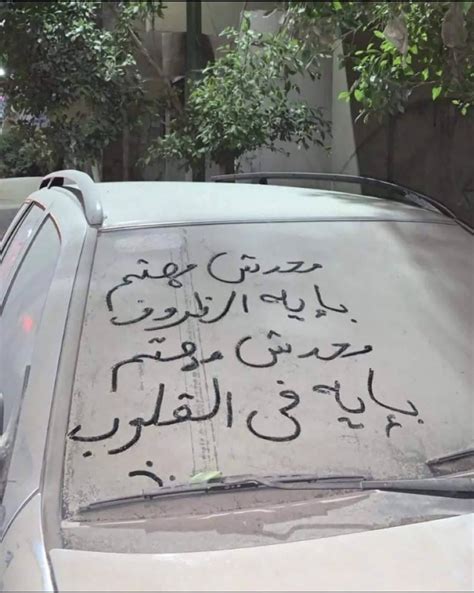 محدش مهتم
بإيه الظروف
محدش مهتم
بإيه في القلوب